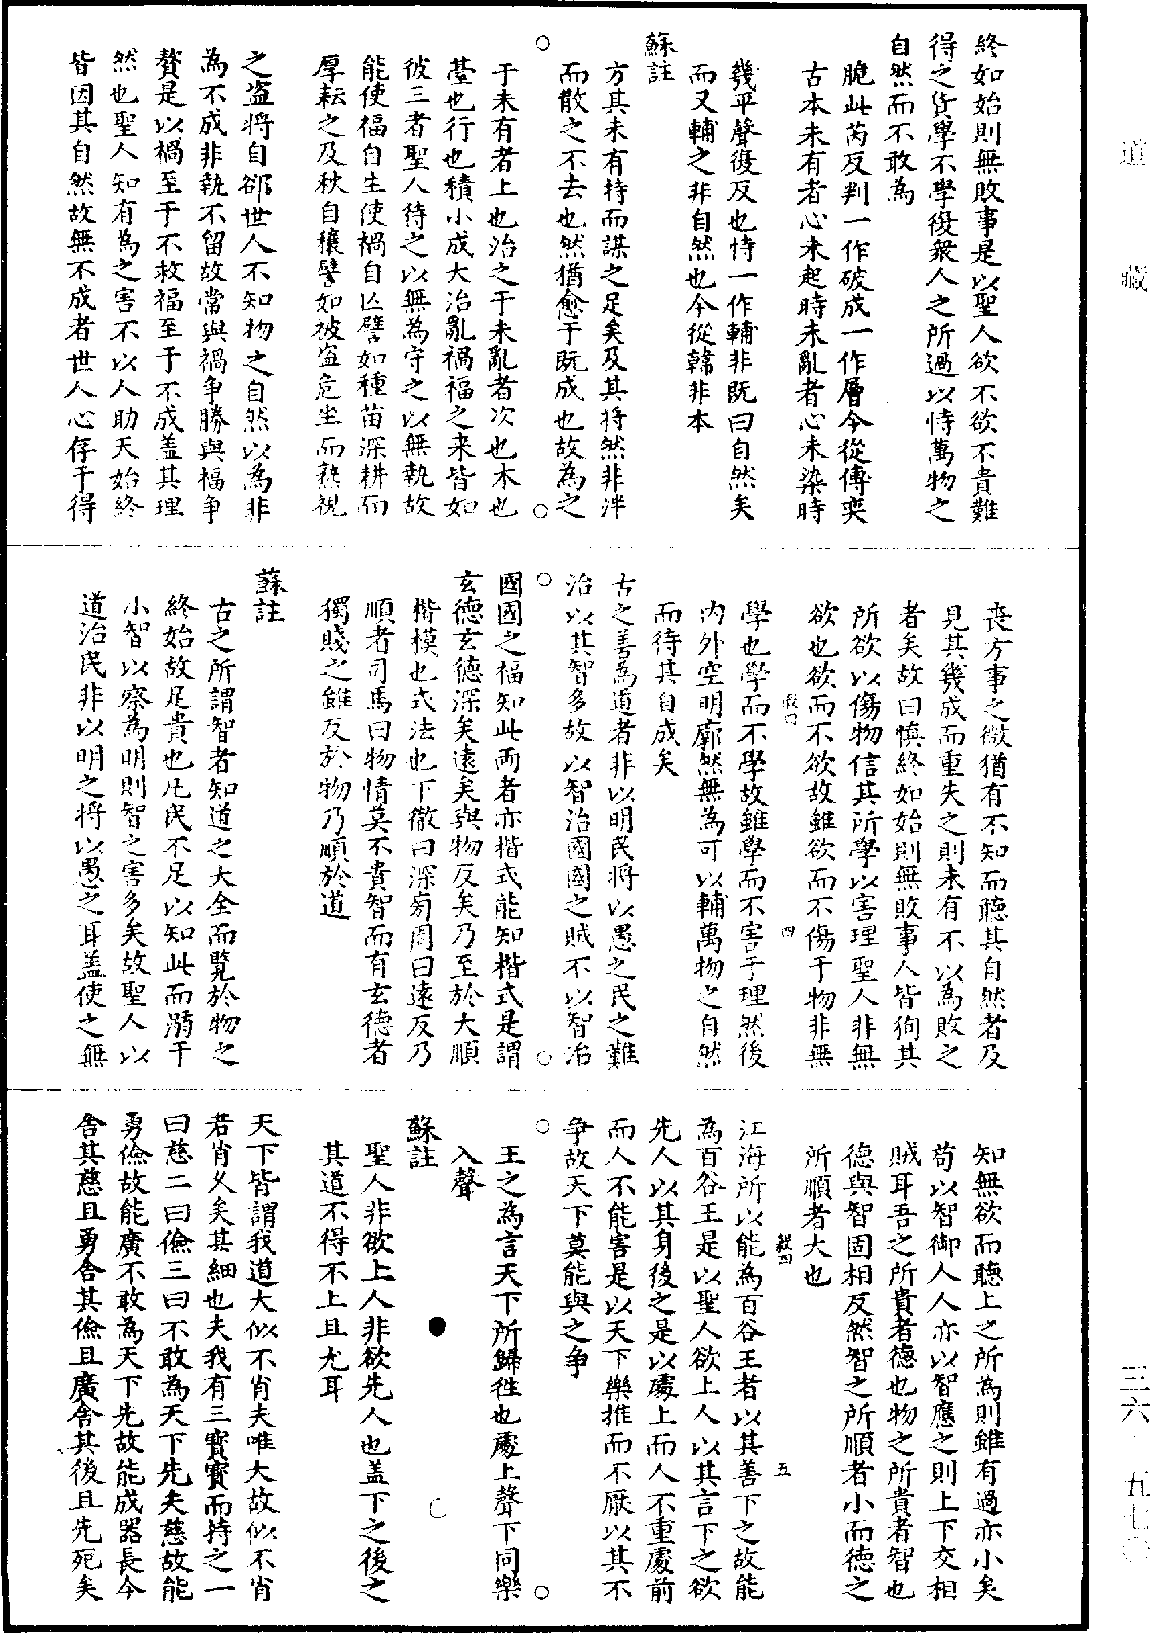 道藏
三六 五七〇
終如始則無敗事是以聖人欲不欲不貴難
得之貨學不學復衆人之所過以恃萬物之
自然而不敢為
脆此芮反判一作破成一作層今從傅奕
古本未有者心未起時未亂者心未染時
幾平聲復反也恃一作輔非既曰自然矣
而又輔之非自然也今從韓非本
蘇註
方其未有持而謀之足矣及其將然非泮
而散之不去也然猶愈于既成也故為之
于未有者上也治之于未亂者次也木也
䑓也行也積小成大治亂禍福之来皆如
彼三者聖人待之以無為守之以無執故
能使福自生使禍自亡譬如種苗深耕而
厚耘之及秋自穰譬如被盜危坐而熟視
之盜將自郤世人不知物之自然以為非
為不成非執不留故常與禍争勝與福争
贅是以禍至于不救福至于不成盖其理
然也聖人知有為之害不以人助天始終
皆因其自然故無不成者世人心存于得
喪方事之微猶有不知而聽其自然者及
見其幾成而重失之則未有不以為敗之
者矣故曰慎終如始則無敗事人皆狥其
所欲以傷物信其所學以害理聖人非無
欲也欲而不欲故雖欲而不傷于物非無
四
學也學而不學故雖學而不害于理然後
内外空明廓然無為可以輔萬物之自然
而待其自成矣
古之善為道者非以明民將以愚之民之難
治以其智多故以智治國國之賊不以智治
國國之福知此两者亦楷式能知楷式是謂
玄德玄德深矣遠矣與物反矣乃至於大順
楷模也式法也下徹曰深旁周曰遠反乃
順者司馬曰物情莫不貴智而有玄德者
獨賤之雖反於物乃順於道
蘇註
古之所謂智者知道之大全而覽於物之
終始故足貴也凡民不足以知此而溺于
小智以察為明則智之害多矣故聖人以
道治民非以明之將以愚之耳盖使之無
知無欲而聽上之所為則雖有過亦小矣
苟以智御人人亦以智應之則上下交相
賊耳吾之所貴者德也物之所貴者智也
德與智固相反然智之所順者小而德之
所順者大也
五
江海所以能為百谷王者以其善下之故能
為百谷王是以聖人欲上人以其言下之欲
先人以其身後之是以處上而人不重處前
而人不能害是以天下樂推而不厭以其不
争故天下莫能與之争
王之為言天下所歸徃也處上聲下同樂
入聲
蘇註
聖人非欲上人非欲先人也盖下之後之
其道不得不上且尤耳
天下皆謂我道大似不肖夫唯大故似不肖
若肖久矣其細也夫我有三寶寶而持之一
曰慈二曰儉三曰不敢為天下先夫慈故能
勇儉故能廣不敢為天下先故能成器長今
舍其慈且勇舍其儉且廣舍其後且先死矣